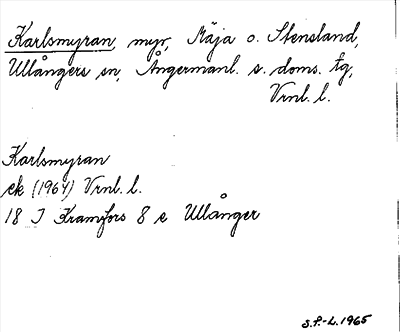 Karlsmyran, myr, Mäja o. Stensland,
Ullångers sn, Ångermanl. s. doms. tg,
Vrnl. l.
Karlsmyran
ek (1964) Vrnl. l.
18 I Kramfors 8 e Ullånger
S.F.-L. 1965